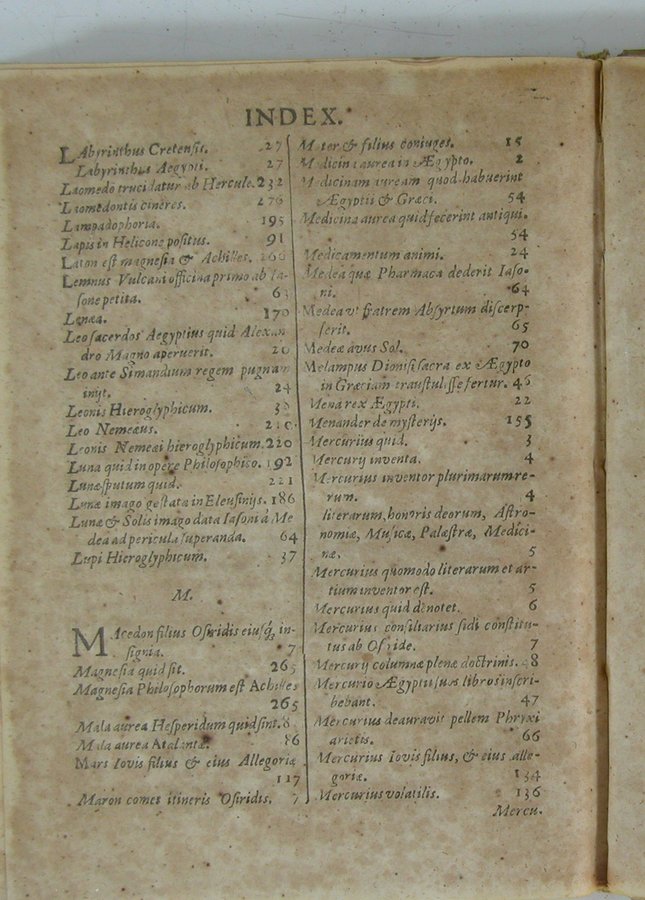 INDEX.
LAbyrinthus Cretensis. 27
Labyrinthus Aegypti. 27
Laomedō trucidatur ab Hercule. 232
Laomedontis cineres. 276
Lampadophoria. 195
Lapis in Helicone positus. 91
Laton est magnesia & Achilles. 266
Lemnus Vulcani officina primo ab Ia-
sone petita. 63
Lenæa. 170
Leo sacerdos Aegyptius quid Alexan
dro Magno aperuerit. 20
Leo ante Simandium regem pugnam
inijt. 24
Leonis Hieroglyphicum.
Leo Nemeæus.
Leonis Nemeæi hieroglyphicum. 220
Luna quid in opere Philosophico. 192
Lunæ sputum quid. 221
Lunæ imago gestata in Eleusinijs. 186
Lunæ & Solis imago data Iasoni á Me
dea ad pericula superanda. 64
Lupi Hieroglyphicum. 37
M.
MAcedon filius Osiridis eiusq; in-
signia. 7
Magnesia quid sit. 265
Magnesia Philosophorum est Achilles
265
Mala aurea Hesperidum quid sint.
Mala aurea Atalantæ. 86
Mars Iovis filius & eius Allegoria
117
Maron comes itineris Osiridis. 7
Mater & filius coniuges. 15
Medicina aurea in Ægypto. 2
Medicinam auream quod habuerint
Ægyptii & Græci. 54
Medicina aurea quid fecerint antiqui.
54
Medicamentum animi. 24
Medea quæ Pharmaca dederit Iaso-
ni. 64
Medea ut fratrem Absyrtum discerp-
serit. 65
Medeæ avus Sol. 70
Melampus Dionisi sacra ex Ægypto
in Græciam transtulisse fertur. 46
Mena rex Ægypti. 22
Menander de mysterijs. 155
Mercurius quid. 3
Mercurij inventa. 4
Mercurius inventor plurimarum re-
rum. 4
literarum, honoris deorum, Astro-
nomiæ, Musicæ, Palæstræ, Medici-
næ. 5
Mercurius quomodo literarum et ar-
tium inventor est. 5
Mercurius quid denotet. 6
Mercurius consiliarius Isidi constitu-
tus ab Osiride. 7
Mercurij columnæ plenæ doctrinis. 48
Mercurio Ægyptii suos libros inscri-
bebant. 47
Mercurius deauravit pellem Phryxi
arietis. 66
Mercurius Iovis filius, & eius alle-
goriæ. 134
Mercurius volatilis. 136
Mercu.